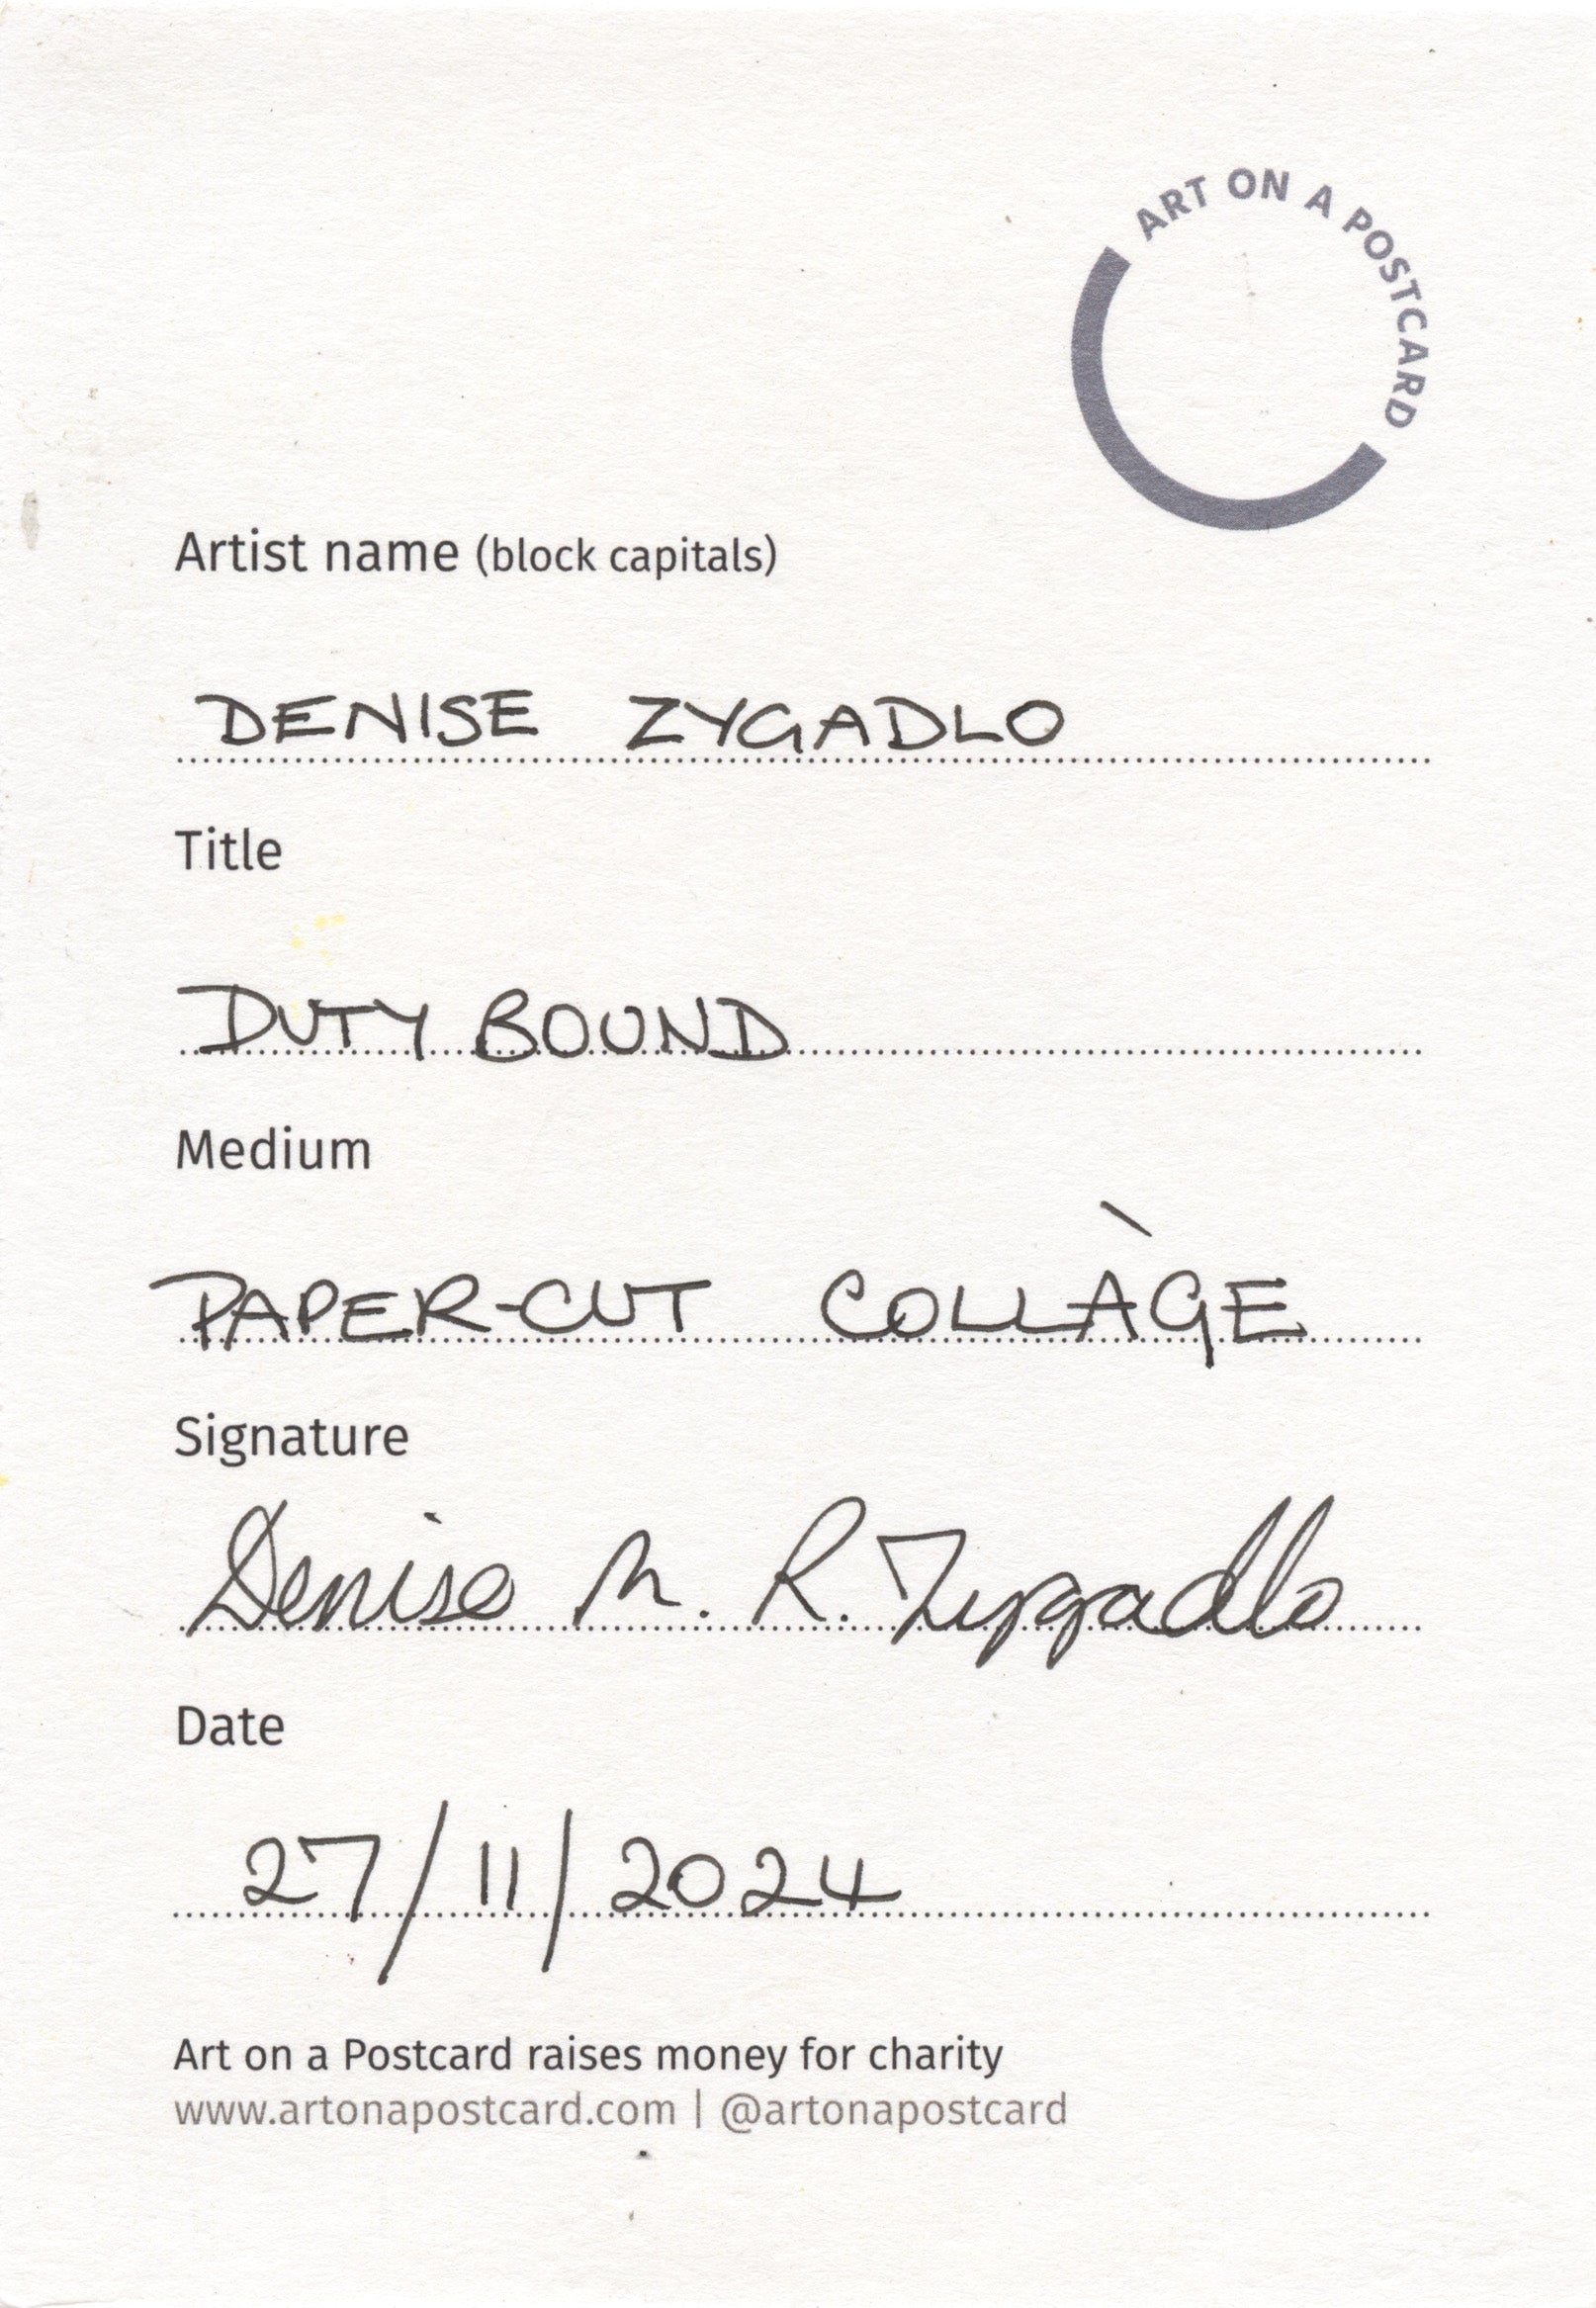 ART ON A POSTCARD
Artist name (block capitals)
DENISE ZYGADLO
Title
DUTY BOUND
Medium
PAPER-CUT COLLÀGE
Signature
Denise M. R. Zygadlo
Date
27/11/2024
Art on a Postcard raises money for charity
www.artonapostcard.com | @artonapostcard